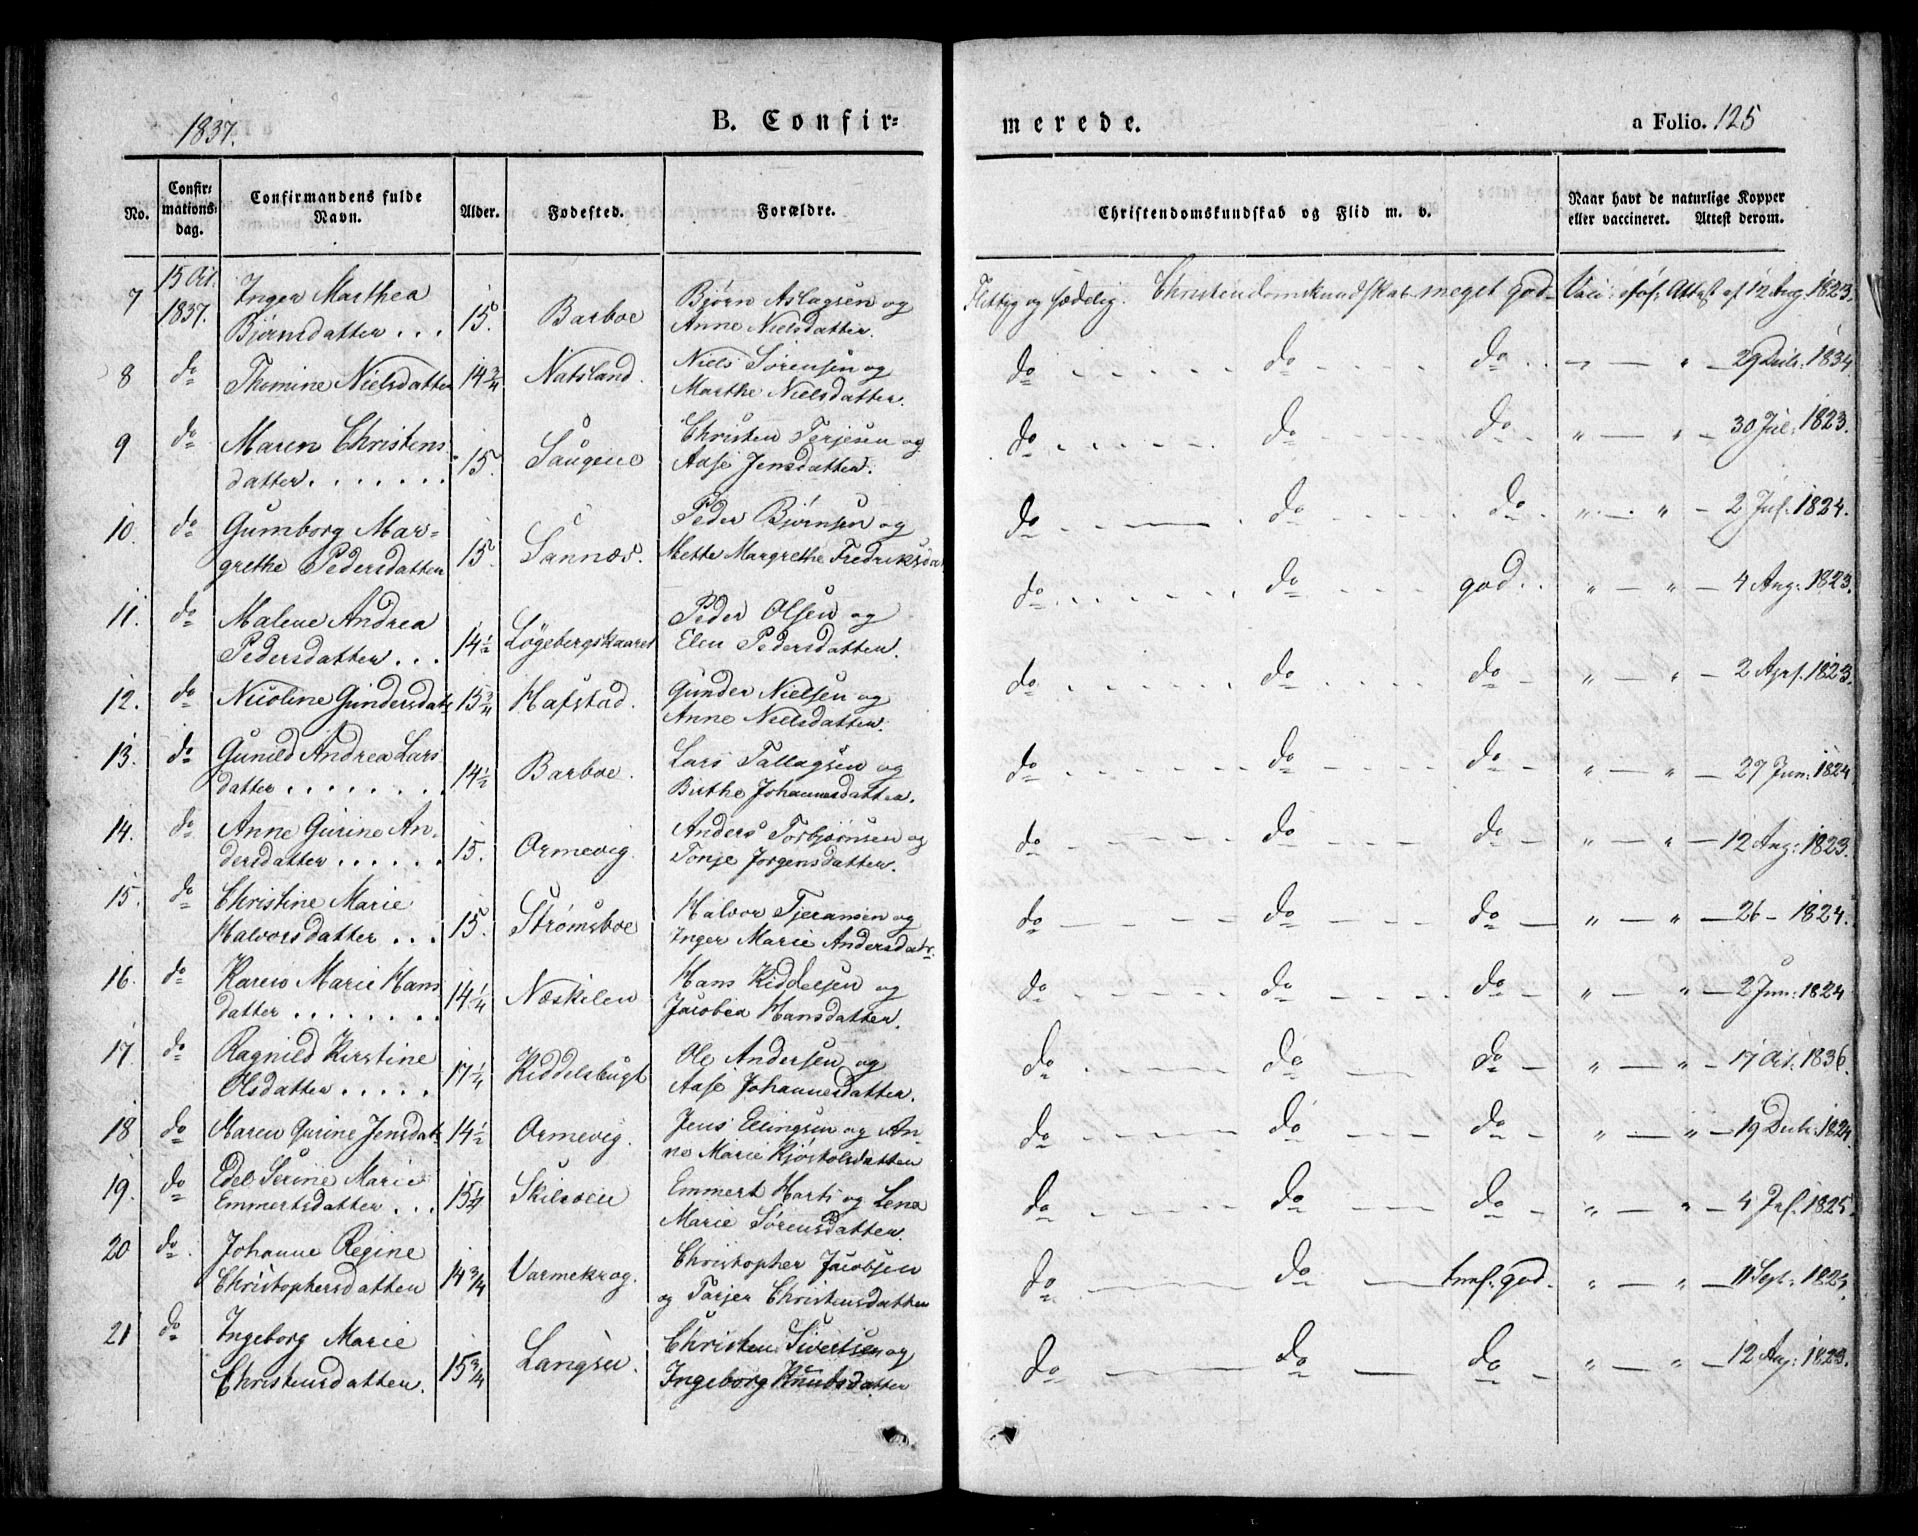 1837.
B. Confir=
merede.
a Folio. 125
No. Confir= mations= dag. Confirmandens fulde Navn. Alder. Fodested. Forældre. Christendomskundskab og Flid m. v. Naar havt de naturlige Kopper eller vaccineret. Attest derom.
7 15 Oct. 1837. Inger Marthea Bjørnsdatter . . . 15. Barboe Bjørn Aslagsen og Anne Nielsdatter. Flittig og sædelig. Christendomskundskab meget god Attest af 12 Aug. 1823.
8 do Thomine Nielsdatter 14 3/4 Natsland. Niels Sørensen og Marthe Nielsdatter. do do do 29 Decb. 1834.
9 do Maren Christens datter. . . . . . . 15. Saugene Christen Terjesen og Aase Jensdatter. do do do " " 30 Jul. 1823.
10. do Gumborg Mar= grethe Pedersdatter 15. Sannæs. Peder Bjørnsen og Mette Margrethe Fredriksda do do do " " 2 Jul. 1824.
11. do Malene Andrea Pedersdatter . . . 14 1/2 Løgebergskaaret Peder Olsen og Elen Pedersdatter. do do god. " " 4 Aug: 1823.
12. do Nicoline Gundersdat 15 3/4 Hafstad. Gunder Nielsen og Anne Nielsdatter. do do do " " 2 Apr. 1823.
13. do Gunild Andrea Lars datter . . . . . . . . 14 1/2 Barboe. Lars Tallagsen og Birthe Johannesdatter. do do do " " 27 Jun: 1824
14. do Anne Gurine An= dersdatter . . . . . . 15. Ormevig. Anders Torbjørnsen og Tonje Jørgensdatter. do do do " " 12 Aug: 1823.
15. do Christine Marie Halvorsdatter . . . 15. Strømsboe Halvor Tjeransen og Inger Marie Andersdatr. do do do " " 26 - 1824.
16. do Karen Marie Hans datter . . . . . . . . 14 1/4 Næskilen Hans Kiddelsen og Jacobea Hansdatter. do do do " " 2 Jun: 1824
17. do Ragnild Kirstine Olsdatter . . . . . 17 1/4 Kiddelsbugt Ole Andersen og Aase Johannesdatter. do do do " " 17 Oct. 1836.
18 do Maren Gurine Jensdat 14 1/2 Ormevig. Jens Ellingsen og An= ne Marie Kjøstolsdatter do do do " " 19 Decb. 1824.
19. do Edel Serine Marie Emmertsdatter . . . 15 1/4 Skilsøen Emmert Harts og Lena Marie Sørensdatter. do do do " " 4 1825.
20 do. Johanne Regine Christophersdatter 14 3/4 Varmekrog. Christopher Jacobsen og Tarjer Christensdatter do do god. " " 11 Sept: 1823.
21 do Ingeborg Marie Christensdatter. 15 3/4 Langsev. Christen Sivertsen og Ingeborg Knudsdatter do do do " " 12 Aug: 1823.